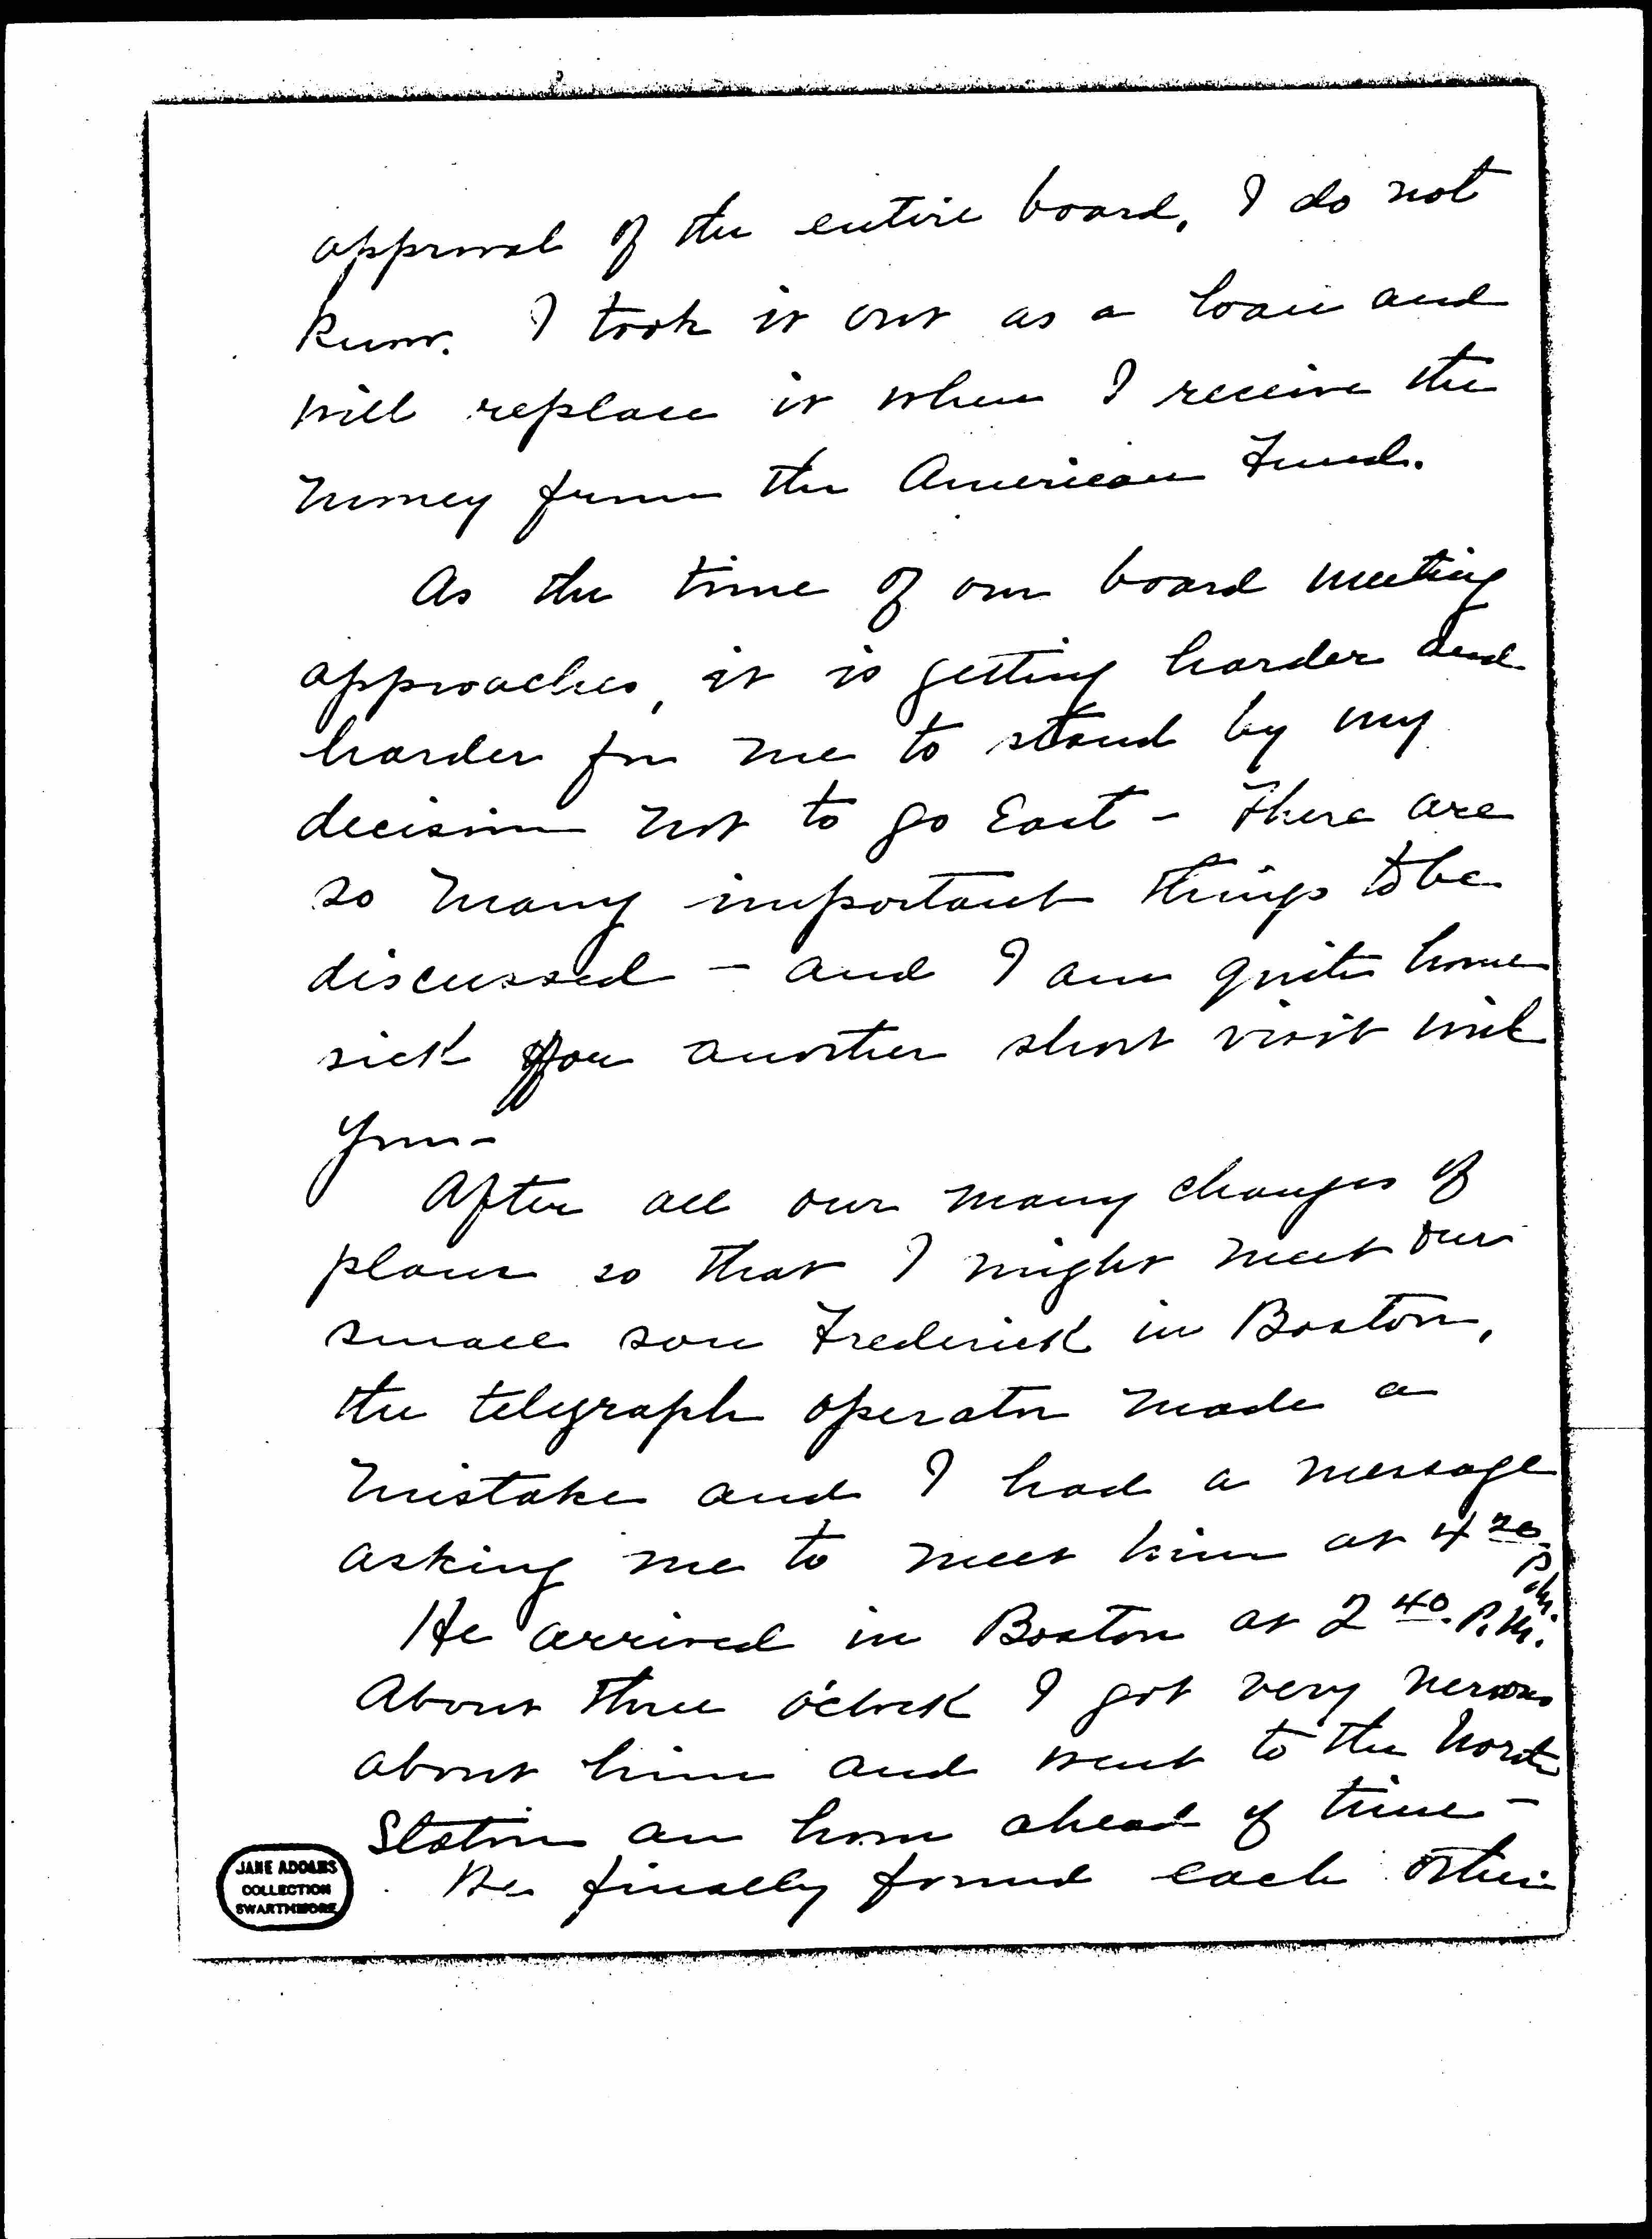 approval of the entire board, I do not
know. I took it out as a loan and
will replace it when I receive the
money from the American Fund.
As the time of our board meeting
approaches, it is getting harder and
harder for me to stand by my
decision not to go East - There are
so many important things to be
discussed - and I am quite home
sick for another short visit with
you -
After all our many changes of
plans so that I might meet our
small son Frederick in Boston,
the telegraph operator made a
mistake and I had a message
asking me to meet him at 4 20 P.M.
He arrived in Boston at 2 40. P.M.
About three o'clock I got very nervous
about him and went to the North
Station an hour ahead of time -
We finally found each other
JANE ADDAMS
COLLECTION
SWARTHMORE